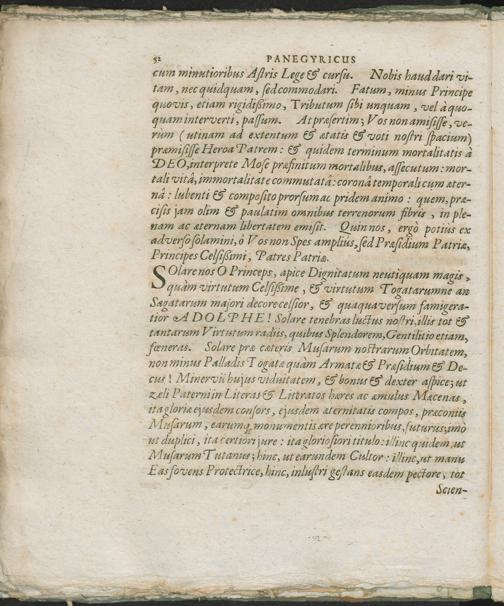 52 PANEGYRICUS
cum minutioribus Astris Lege & cursu. Nobis haud dari vi-
tam, nec quidquam, sed commodari. Fatum, minus Principe
quovis, etiam rigidissimo, Tributum sibi unquam, vel à quo-
quam interverti, passum. At præsertim; Vos non amisisse, ve-
rùm (utinam ad extentum & ætatis & voti nostri spacium)
præmisisse Heroa Patrem: & quidem terminum mortalitatis à
DEO, interprete Mose præfinitum mortalibus, assecutum: mor-
tali vitâ, immortalitate commutatâ: coronâ temporali cum æter-
nâ: lubenti & composito prorsum ac pridem animo: quem, præ-
cisis jam olim & paulatim omnibus terrenorum fibris, in ple-
nam ac æternam libertatem emisit. Quin nos, ergò potius ex
adverso solamini, ô Vos non Spes amplius, sed Præsidium Patriæ,
Principes Celsissimi, Patres Patriæ.
SOlare nos O Princeps, apice Dignitatum neutiquam magis,
quàm virtutum Celsissime, & virtutum Togatarumne an
Sagatarum majori decore celsior, & quaquaversum famigera-
tior ADOLPHE! Solare tenebras luctus nostri, illis tot &
tantarum Virtutum radiis, quibus Splendorem, Gentilitio etiam,
fœneras. Solare præ cæteris Musarum nostrarum Orbitatem,
non minus Palladis Togatæ quàm Armatæ & Præsidium & De-
cus! Minervii hujus viduitatem, & bonus & dexter aspice; ut
zeli Paterni in Literas & Literatos hæres ac æmulus Mæcenas,
ita gloriæ ejusdem consors, ejusdem æternitatis compos, præconiis
Musarum, earumq́ monumentis ære perennioribus, futurus; imò
ut duplici, ita certiori jure: ita gloriosiori titulo: illinc quidem, ut
Musarum Tutanus; hinc, ut earundem Cultor: illinc, ut manu
Eas fovens Protectrice, hinc, inlustri gestans easdem pectore, tot
Scien-